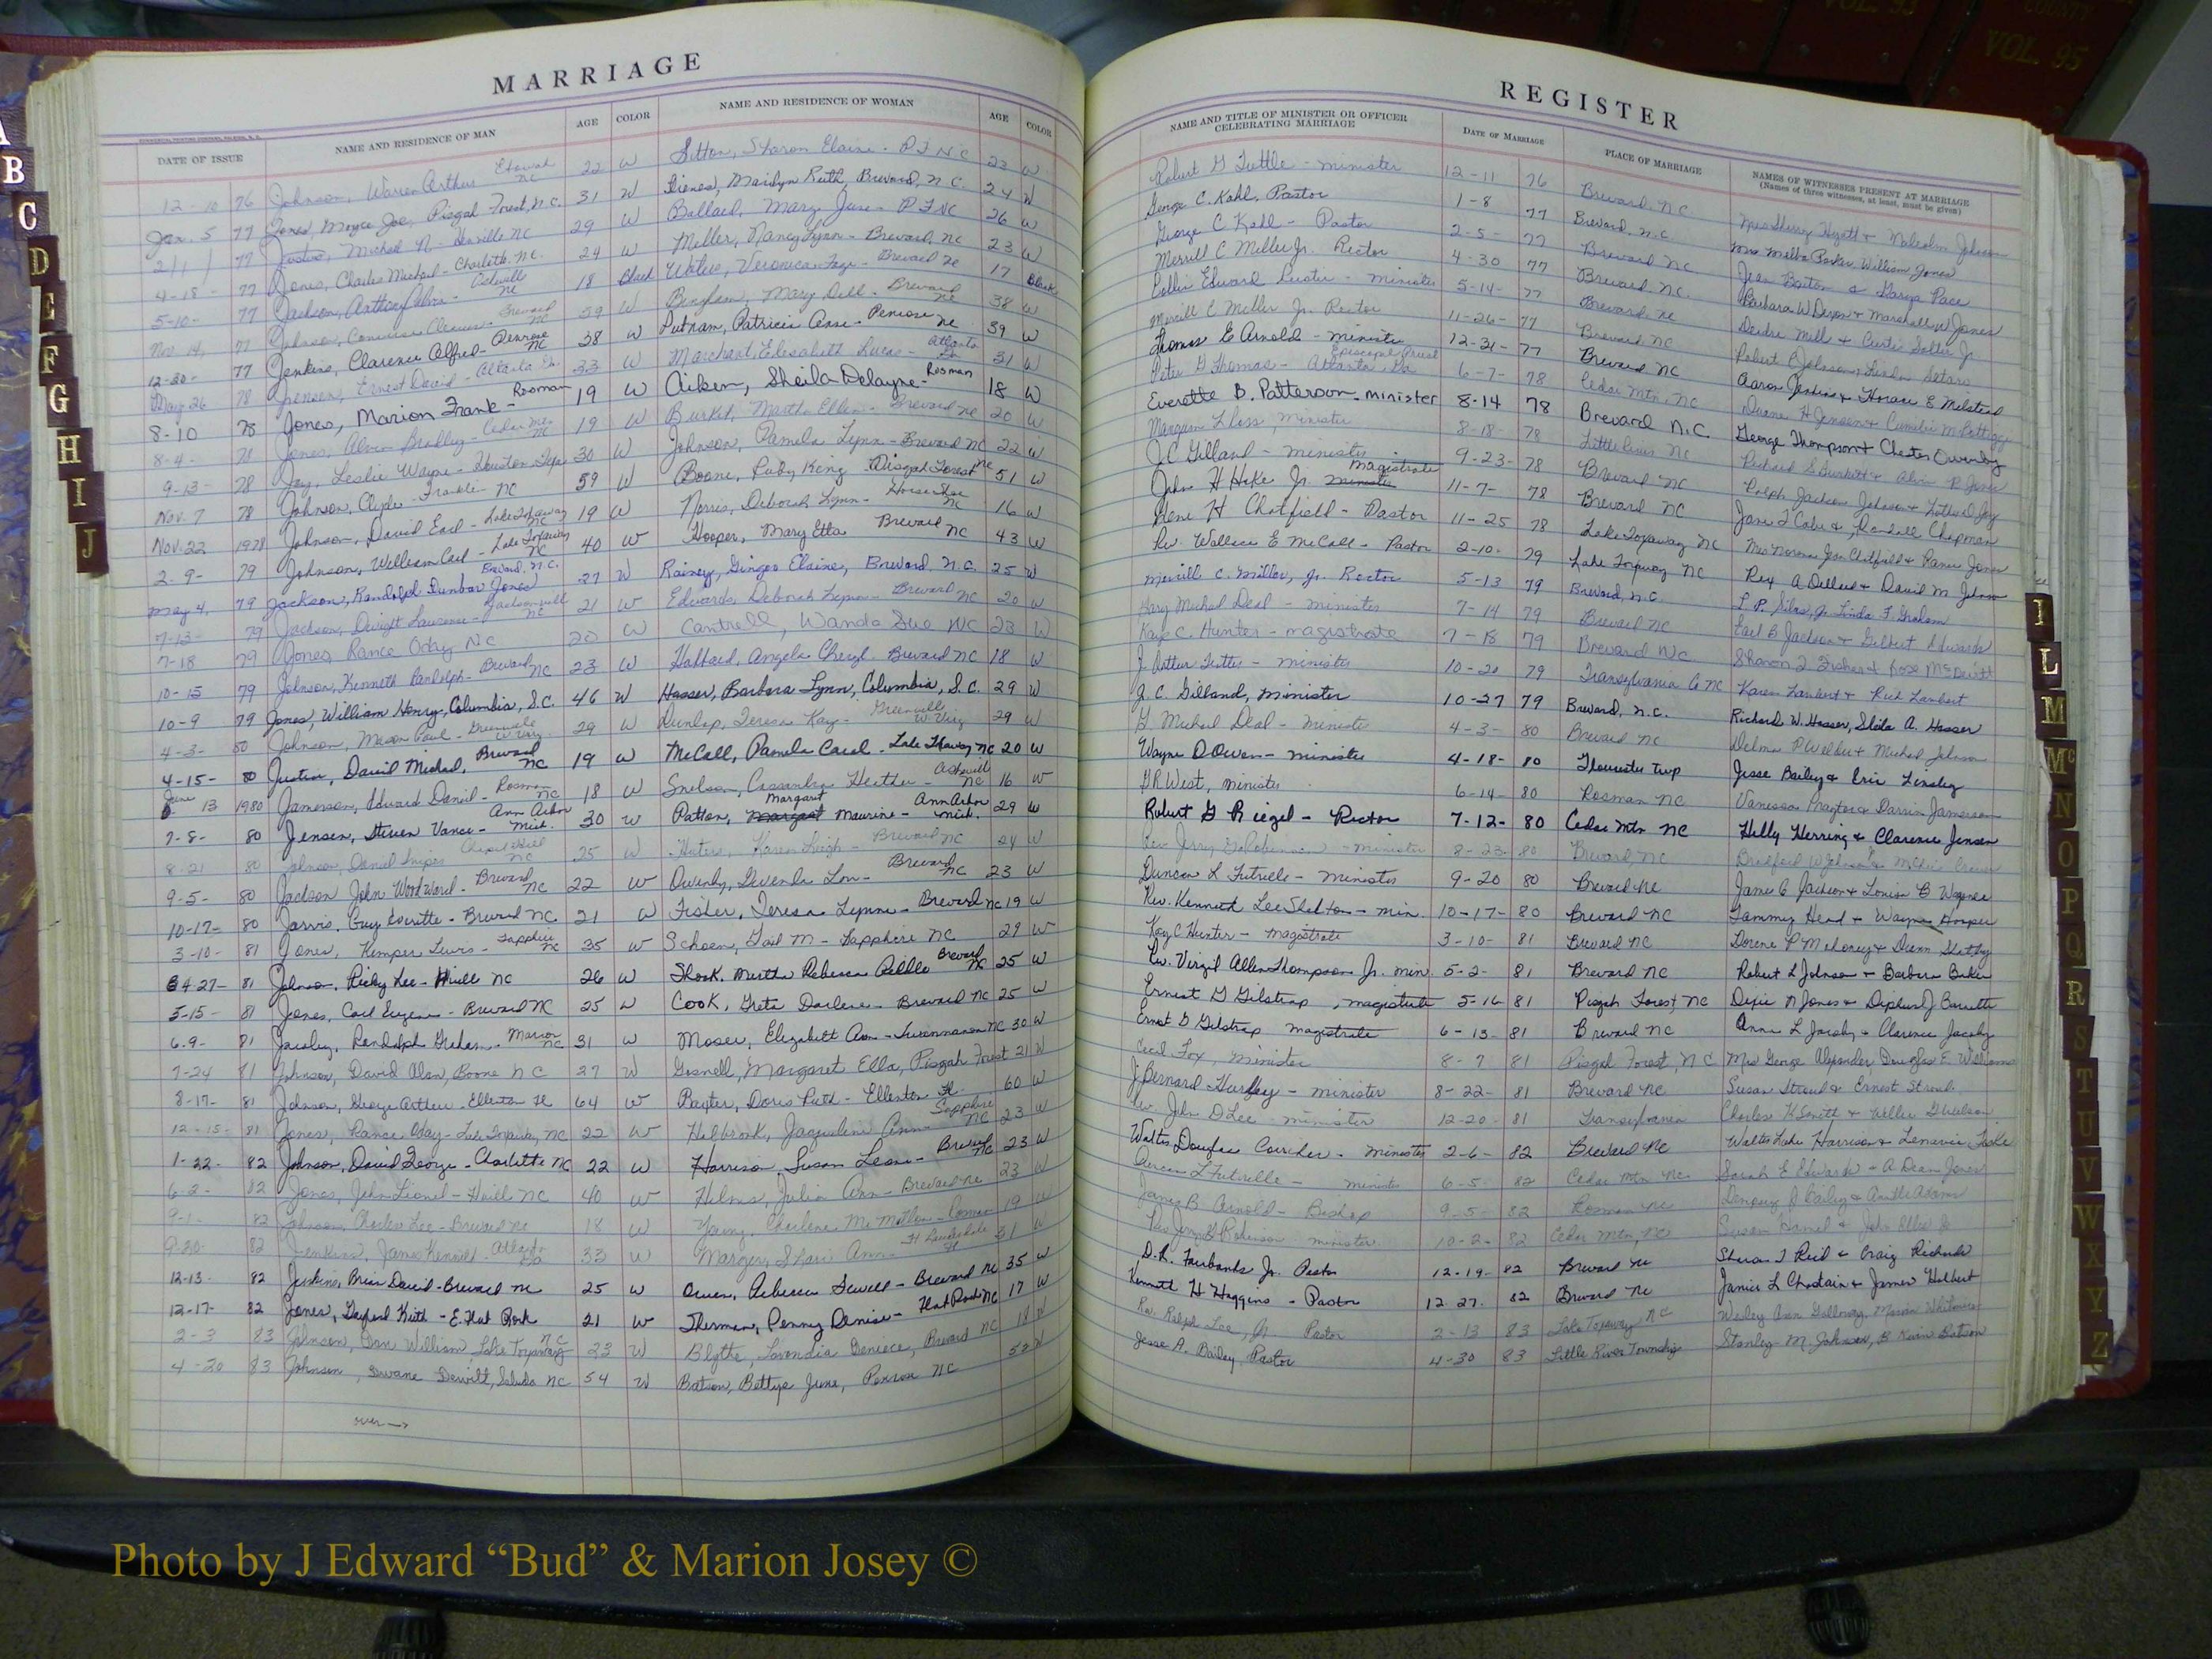 MARRIAGE
DATE OF ISSUE NAME AND RESIDENCE OF MAN AGE COLOR NAME AND RESIDENCE OF WOMAN AGE COLOR
12-10 76 Johnson, Warren Arthur Etowah NC 22 W Sitton, Sharon Elaine - P F NC 23 W
Jan. 5 77 Jones, Moyce Joe, Pisgah Forest, N.C. 31 W Marilyn Ruth, Brevard, N.C. 24 W
2/1/ 77 Justus, Michael N - NC 29 W Ballard, Mary June - P F NC 26 W
4-18- 77 Jones, Charles Michael - Charlotte, NC. 24 W Miller, Nancy Lynn - Brevard, NC 23 W
5-10- 77 Jackson, Anthony NC 18 Black Veronica Faye - Brevard NC 17 Black
Nov 14, 77 Johnson, Brevard NC 59 W Mary Dell - Brevard NC 38 W
12-30- 77 Jenkins, Clarence Alfred - Penrose NC 38 W Putnam, Patricia Anne - Penrose NC 39 W
May 26 78 Jensen, Ernest David - Atlanta Ga. 33 W Marchant, Elizabeth Lucas - Atlanta Ga 31 W
8-10 78 Jones, Marion Frank - Rosman 19 W Aiken, Sheila Delayne - Rosman 18 W
8-4- 78 Jones, Alvin Bradley - Cedar Mtn. NC 19 W Martha Ellen - Brevard NC 20 W
9-13- 78 Joy, Leslie Wayne - Houston 30 W Johnson, Pamela Lynn - Brevard NC 22 W
Nov. 7 78 Johnson, Clyde - Franklin NC 59 W Boone, Ruby King - Pisgah Forest NC 51 W
Nov. 22 1978 Johnson, David Earl - Lake Toxaway NC 19 W Norris, Deborah Lynn - Horse Shoe NC 16 W
2-9- 79 Johnson, William Carl - Lake Toxaway NC 40 W Hooper, Mary Etta Brevard NC 43 W
May 4, 79 Jackson, Randolph Dunbar Jones Brevard, N.C. 27 W Rainey, Ginger Elaine, Brevard, N.C. 25 W
7-13- 79 Jackson, Dwight Lawrence - Jacksonville NC 21 W Edwards, Deborah Lynn - Brevard NC 20 W
7-18 79 Jones, Rance Oday NC 20 W Cantrell, Wanda Sue NC 23 W
10-15 79 Johnson, Kenneth Randolph - Brevard NC 23 W Hubbard, Angela Cheryl - Brevard NC 18 W
10-9 79 Jones, William Henry, Columbia, S.C. 46 W Hasser, Barbara Lynn, Columbia, S.C. 29 W
4-3- 80 Johnson, Mason Paul - 29 W Dunlap, Teresa Kay - 29 W
4-15- 80 Justice, David Michael, Brevard NC 19 W McCall, Pamela Carol - Lake Toxaway NC 20 W
June 13 1980 Jamerson, Edward Daniel - Rosman NC 18 W Snelson, Cassandra Heather - Asheville NC 16 W
7-8- 80 Jensen, Steven Vance - Ann Arbor Mich. 30 W Patton, Margaret Maurine - Ann Arbor Mich. 29 W
8-21 80 Johnson, Daniel Snipes Chapel Hill NC 25 W Karen Leigh - Brevard NC 24 W
9-5- 80 Jackson, John Woodward - Brevard NC 22 W Owenby, Devenda Lou - Brevard NC 23 W
10-17- 80 Jarvis, Guy Everitte - Brevard NC. 21 W Fisher, Teresa Lynne - Brevard NC 19 W
3-10- 81 Jones, Kemper Lewis - Sapphire NC 35 W Schoen, Gail M - Sapphire NC 29 W
4-27- 81 Johnson, Ricky Lee - NC 26 W Shook, Martha Rebecca Brevard NC 25 W
5-15- 81 Jones, Carl Eugene - Brevard NC 25 W Cook, Greta Darlene - Brevard NC 25 W
6-9- 81 Jacoby, Randolph Graham - Marion NC 31 W Moser, Elizabeth Ann - Swannanoa NC 30 W
7-24 81 Johnson, David Alan, Boone NC 27 W Gosnell, Margaret Ella, Pisgah Forest 21 W
8-17- 81 Johnson, George Arthur - Ellenton Fl 64 W Baxter, Doris Ruth - Ellenton Fl. 60 W
12-15- 81 Jones, Rance Oday - Lake Toxaway, NC 22 W Holbrook, Jaqueline Ann - Sapphire NC 23 W
1-22- 82 Johnson, David George - Charlotte NC 22 W Harrison, Susan Leone - Brevard NC 23 W
6-2- 82 Jones, John Lionel - NC 40 W Helms, Julia Ann - Brevard NC 23 W
9-1- 82 Johnson, Charles Lee - Brevard NC 18 W Young, Charlene McMillon - 19
9-20- 82 Jenkins, James Kenneth - Atlanta Ga 33 W Shari Ann - Ft Lauderdale Fl 31 W
12-13- 82 Jenkins, Brian David - Brevard NC 25 W Owen, Rebecca Sewell - Brevard NC 35 W
12-17- 82 Jones, Keith - E. Flat Rock 21 W Sherman, Penny Denise - Flat Rock NC 17 W
2-3 83 Johnson, Dan William Lake Toxaway NC 23 W Blythe, Lavondia Geniece, Brevard NC 18 W
4-20 83 Johnson, Dwane Dewitt, Saluda NC 54 W Batson, Bettye June, NC 52 W
over →
REGISTER
NAME AND TITLE OF MINISTER OR OFFICER CELEBRATING MARRIAGE DATE OF MARRIAGE PLACE OF MARRIAGE NAMES OF WITNESSES PRESENT AT MARRIAGE
(Names of three witnesses, at least, must be given)
Robert G Tuttle - minister 12-11 76 Brevard, NC Mrs Sherry Hyatt & Malcolm Johnson
George C. Kahl, Pastor 1-8 77 Brevard, N.C. Mrs Melba Parker, William Jones
George C Kahl - Pastor 2-5- 77 Brevard NC Jean & Pace
Merrill C Miller Jr. Rector 4-30 77 Brevard, NC. Barbara W Dixon & Marshall W Jones
Edward - minister 5-14- 77 Brevard, NC
Merrill C Miller Jr. Rector 11-26- 77 Brevard NC Robert B Johnson & Linda
Thomas E Arnold - minister 12-31- 77 Brevard NC Aaron Jenkins & Horace E Milstead
Peter G Thomas - Episcopal Priest Atlanta, Ga 6-7- 78 Cedar Mtn, NC Duane H Jensen &
Everette B. Patterson - minister 8-14 78 Brevard N.C. George Thompson & Chester Owenby
minister 8-18- 78 Little River NC
J C Gilland - minister 9-23- 78 Brevard NC Ralph Jackson Johnson &
John H Hake Jr. magistrate 11-7- 78 Brevard NC Jane & Randall Chapman
Gene H Chatfield - Pastor 11-25 78 Lake Toxaway NC Mrs Norma Jean Chatfield & Jones
Rev. Wallace E McCall - Pastor 2-10- 79 Lake Toxaway NC Rex A & David M
Merrill C. Miller, Jr. Rector 5-13 79 Brevard, N.C. L. P. Linda F. Graham
Gary Michael Deal - minister 7-14 79 Brevard NC Earl B Jackson & Gilbert Edwards
Kaye C. Hunter - magistrate 7-18 79 Brevard NC. Sharon & Rose McDevitt
J. Arthur - minister 10-20 79 Transylvania Co NC Karen Lambert & Rick Lambert
J. C. Gilland, minister 10-27 79 Brevard, N.C. Richard W. Hasser, Sheila A. Hasser
G Michael Deal - minister 4-3- 80 Brevard NC Delma P & Michael Johnson
Wayne D Owen - minister 4-18- 80 Gloucester Twp Jesse Bailey & Eric
G R West, minister 6-14- 80 Rosman NC Vanessa & Darrin Jamerson
Robert G Riegel - Rector 7-12- 80 Cedar Mtn NC Hilly Herring & Clarence Jensen
Rev Jerry - minister 8-23- 80 Brevard NC Bradford W Johnson &
Duncan L Futrelle - minister 9-20 80 Brevard NC James C Jackson & Louise B
Rev. Kenneth Lee Shelton - min. 10-17- 80 Brevard NC Tammy Head & Wayne Hooper
Kay C Hunter - magistrate 3-10- 81 Brevard NC Dorene P Mahoney &
Rev. Virgil Allen Thompson Jr. min. 5-2- 81 Brevard NC Robert L Johnson & Barbara Baker
Ernest G Gilstrap, magistrate 5-16 81 Pisgah Forest, NC Dixie N Jones &
Ernest G Gilstrap magistrate 6-13 81 Brevard NC Anna L Jacoby & Clarence Jacoby
Cecil Fox, minister 8-7 81 Pisgah Forest, N C Mrs George Alexander Douglas E. Williams
J. Bernard Hurley - minister 8-22- 81 Brevard NC Susan Stroud & Ernest Stroud
Rev. John D Lee - minister 12-20- 81 Transylvania Charles K Smith &
Walter Douglas - minister 2-6- 82 Brevard NC Walter Luke Harrison &
Duncan L Futrelle - minister 6-5- 82 Cedar Mtn NC. Sarah E Edwards & A Dean Jones
James B Arnold - Bishop 9-5- 82 Rosman NC Dempsey J Bailey &
Rev Jerry G Robinson minister 10-2- 82 Cedar Mtn, NC
D.R. Fairbanks Jr. Pastor 12-19- 82 Brevard NC Sharon J Reid & Craig Richards
Kenneth H Huggins - Pastor 12-27- 82 Brevard NC Janice L Chastain & James Holbert
Rev. Ralph Lee, Jr Pastor 2-13 83 Lake Toxaway, NC Wesley Ann Galloway, Marvin Whitmire
Jesse A. Bailey, Pastor 4-30 83 Little River Township Stanley M. Johnson, B. Kevin Batson
A
B
C
D
E
F
G
H
I
J
L
M
Mc
N
O
P
Q
R
S
T
U
V
W
X
Y
Z
COUNTY
VOL. 95
Photo by J Edward “Bud” & Marion Josey ©